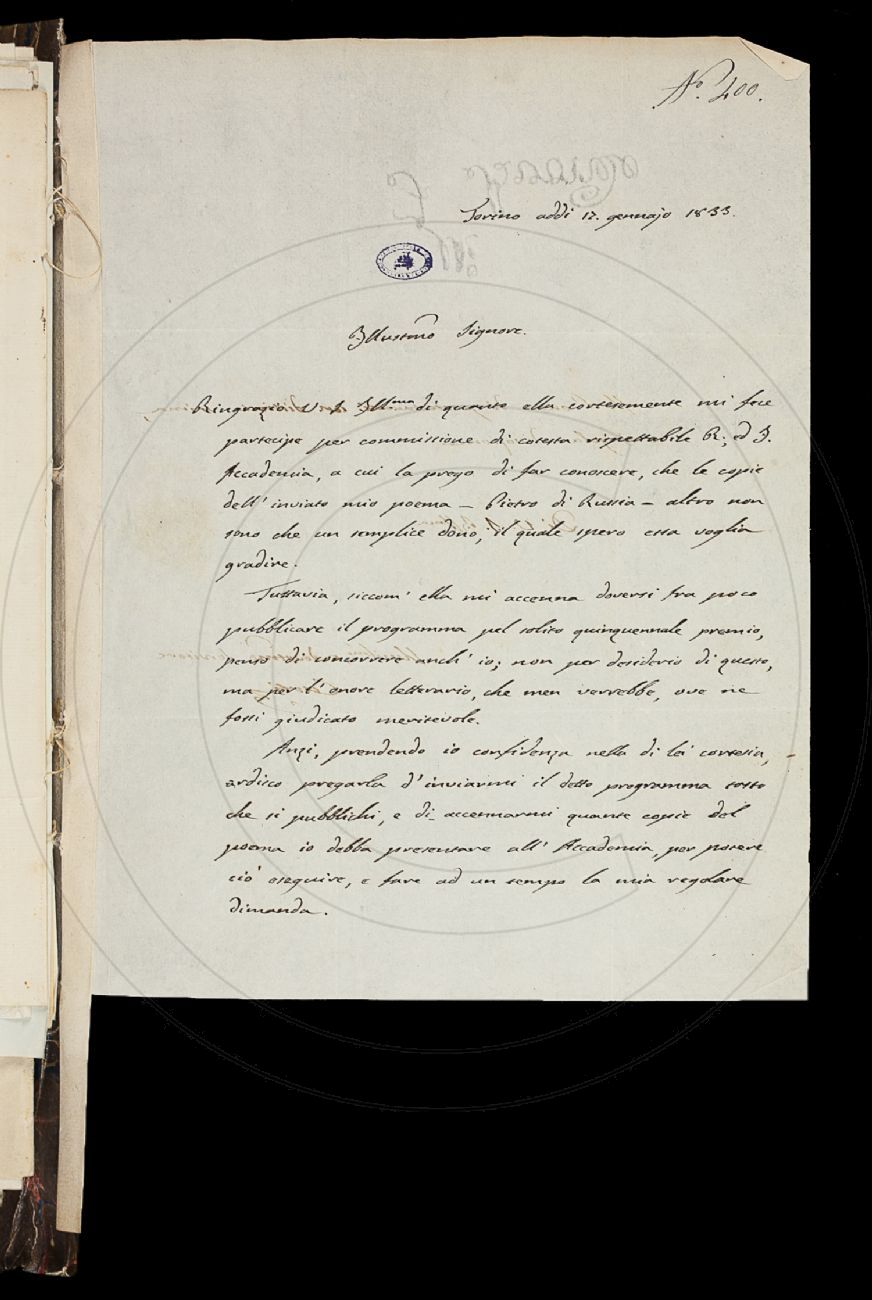 N.° 400.
Torino addi 17. gennajo 1833.
Illustrmo Signore.
Ringrazio V. S. Ill.ma di quanto ella cortesemente mi fece
partecipe per commissione di cotesta rispettabile R., ed I.
Accademia, a cui la prego di far conoscere, che le copie
dell' inviato mio poema – Pietro di Russia – altro non
sono che un semplice dono, il quale spero essa voglia
gradire.
Tuttavia, siccom' ella mi accenna doversi fra poco
pubblicare il programma pel solito quinquennale premio,
penso di concorrere anch' io; non per desiderio di questo,
ma per l' onore letterario, che men verrebbe, ove ne
fossi giudicato meritevole.
Anzi, prendendo io confidenza nella di lei cortesia,
ardisco pregarla d' inviarmi il detto programma tosto
che si pubblichi, e di accennarmi quante copie del
poema io debba presentare all' Accademia, per potere
ciò eseguire, e fare ad un tempo la mia regolare
dimanda.